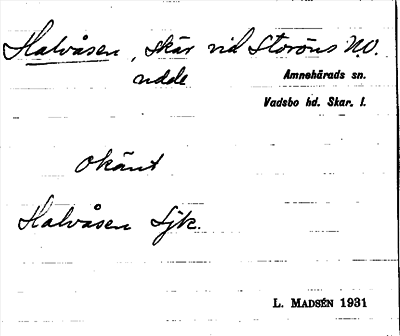 Halvåsen, skär vid Storöns N.O.
udde
Amnehärads sn.
Vadsbo hd. Skar. l.
Okänt
Halvåsen Sjk.
L. MADSÉN 1931